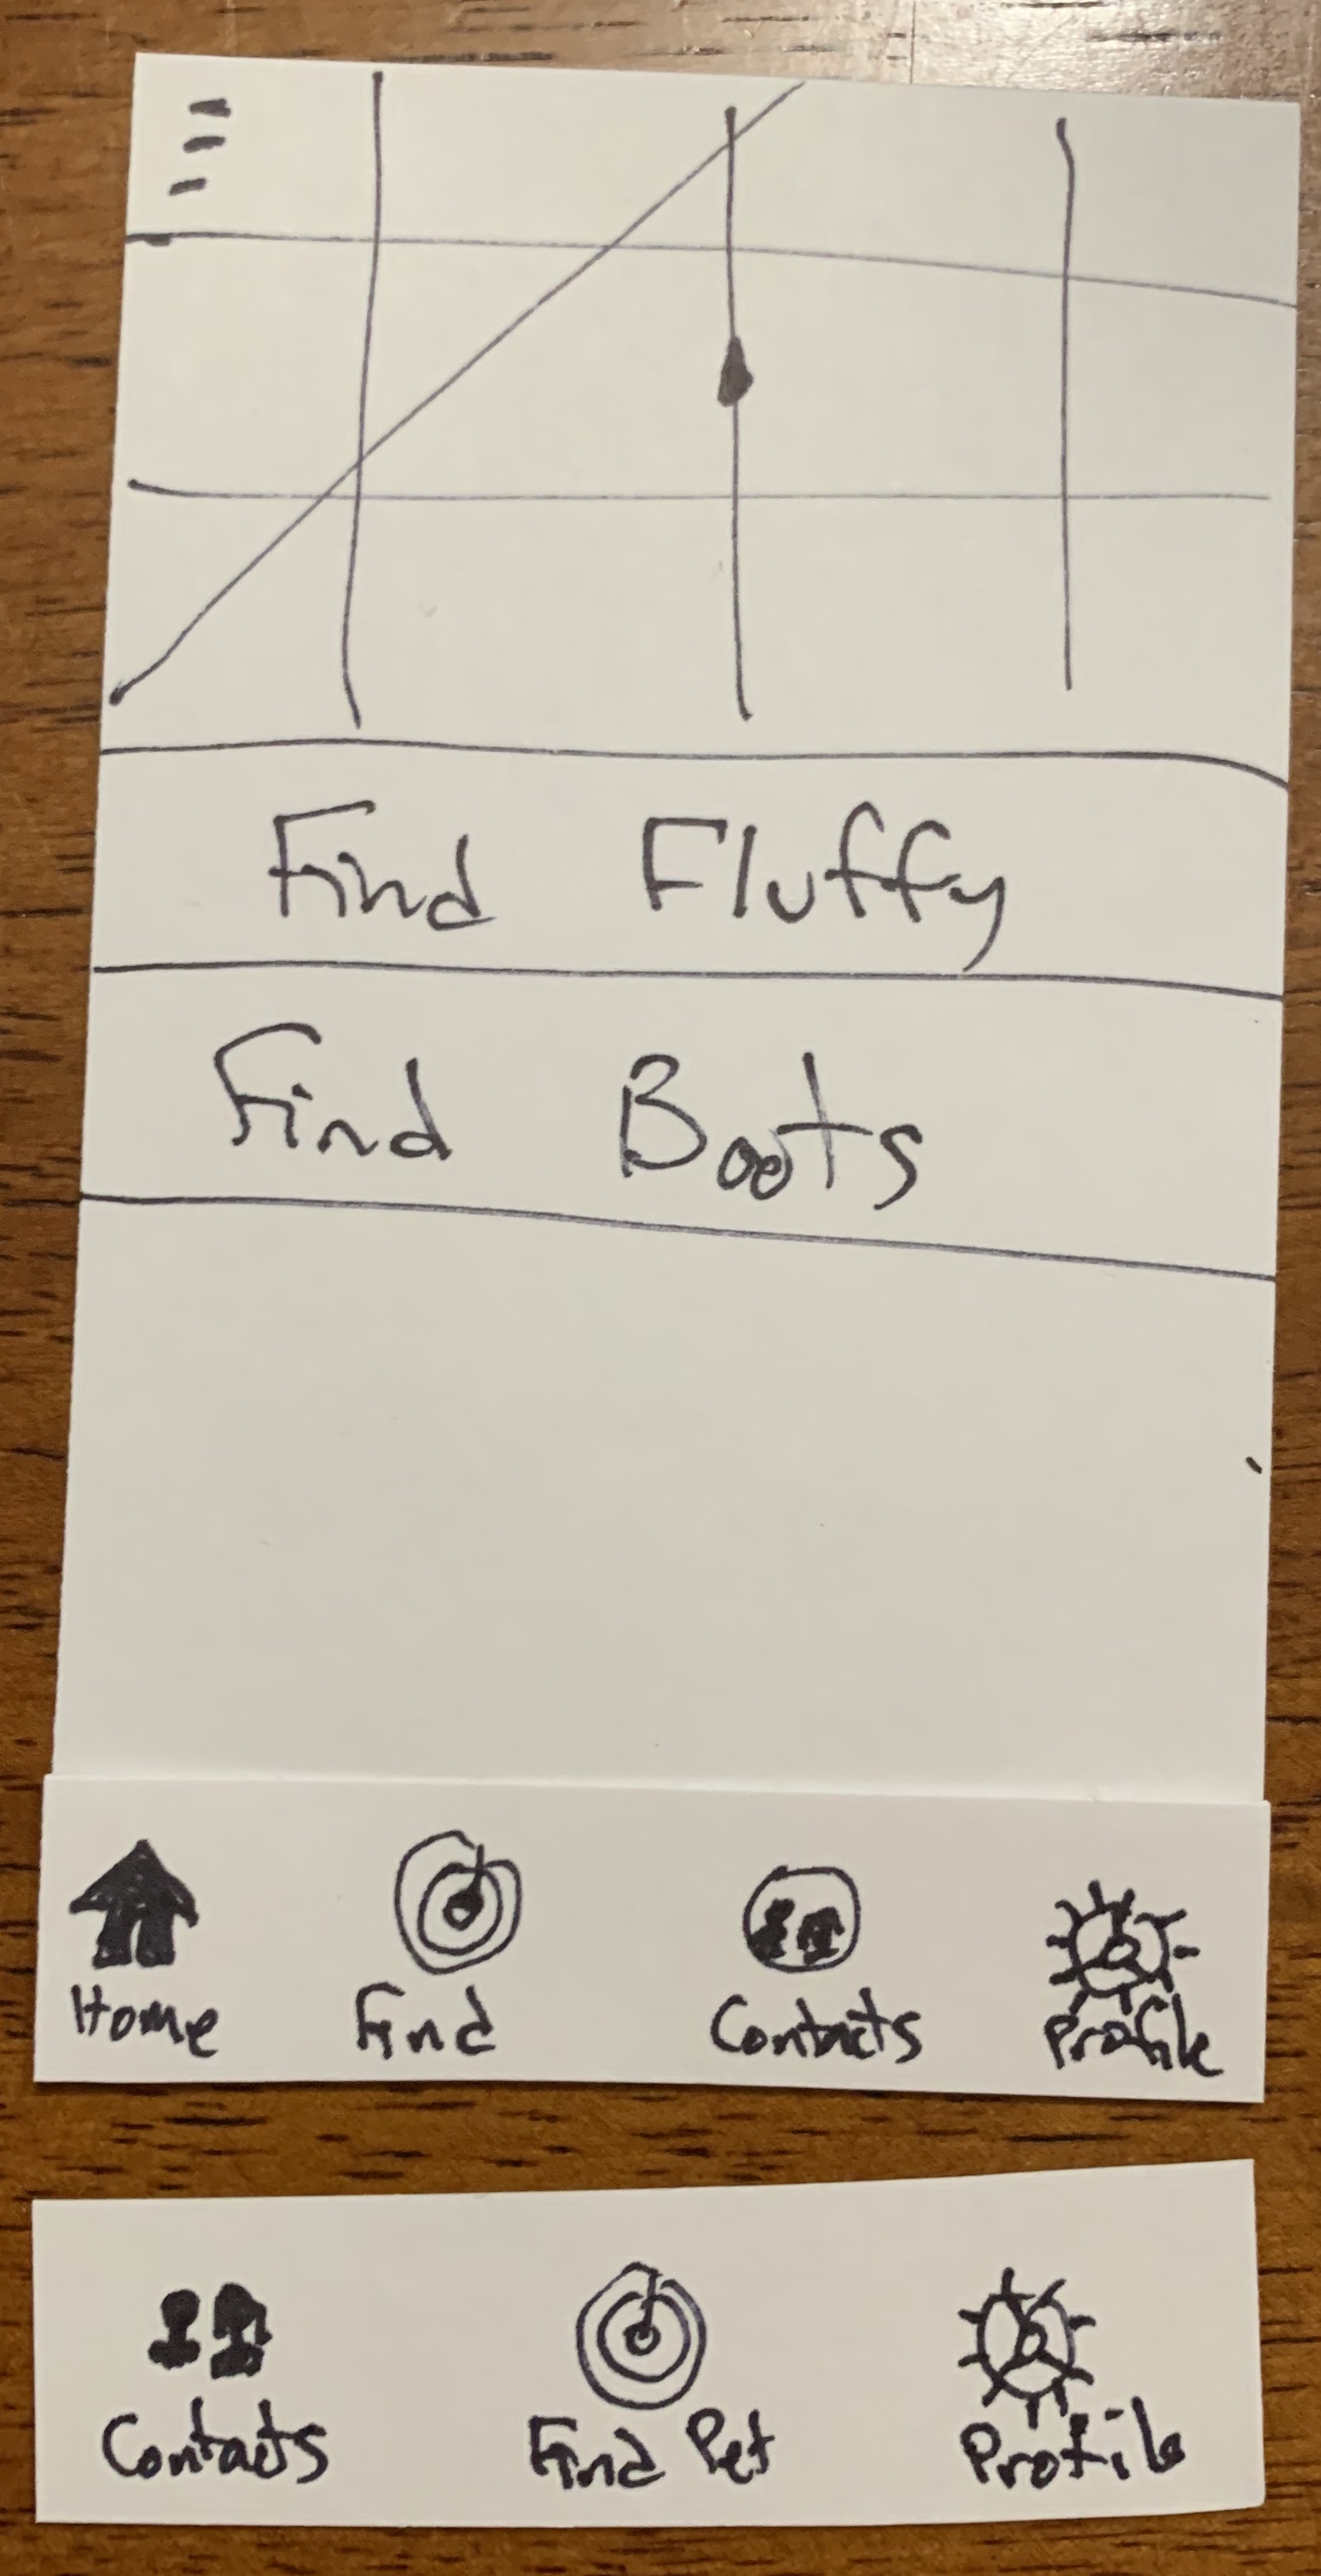 Find Fluffy
Find Boots
Home Find Contacts Profile
Contacts Find Pet Profile